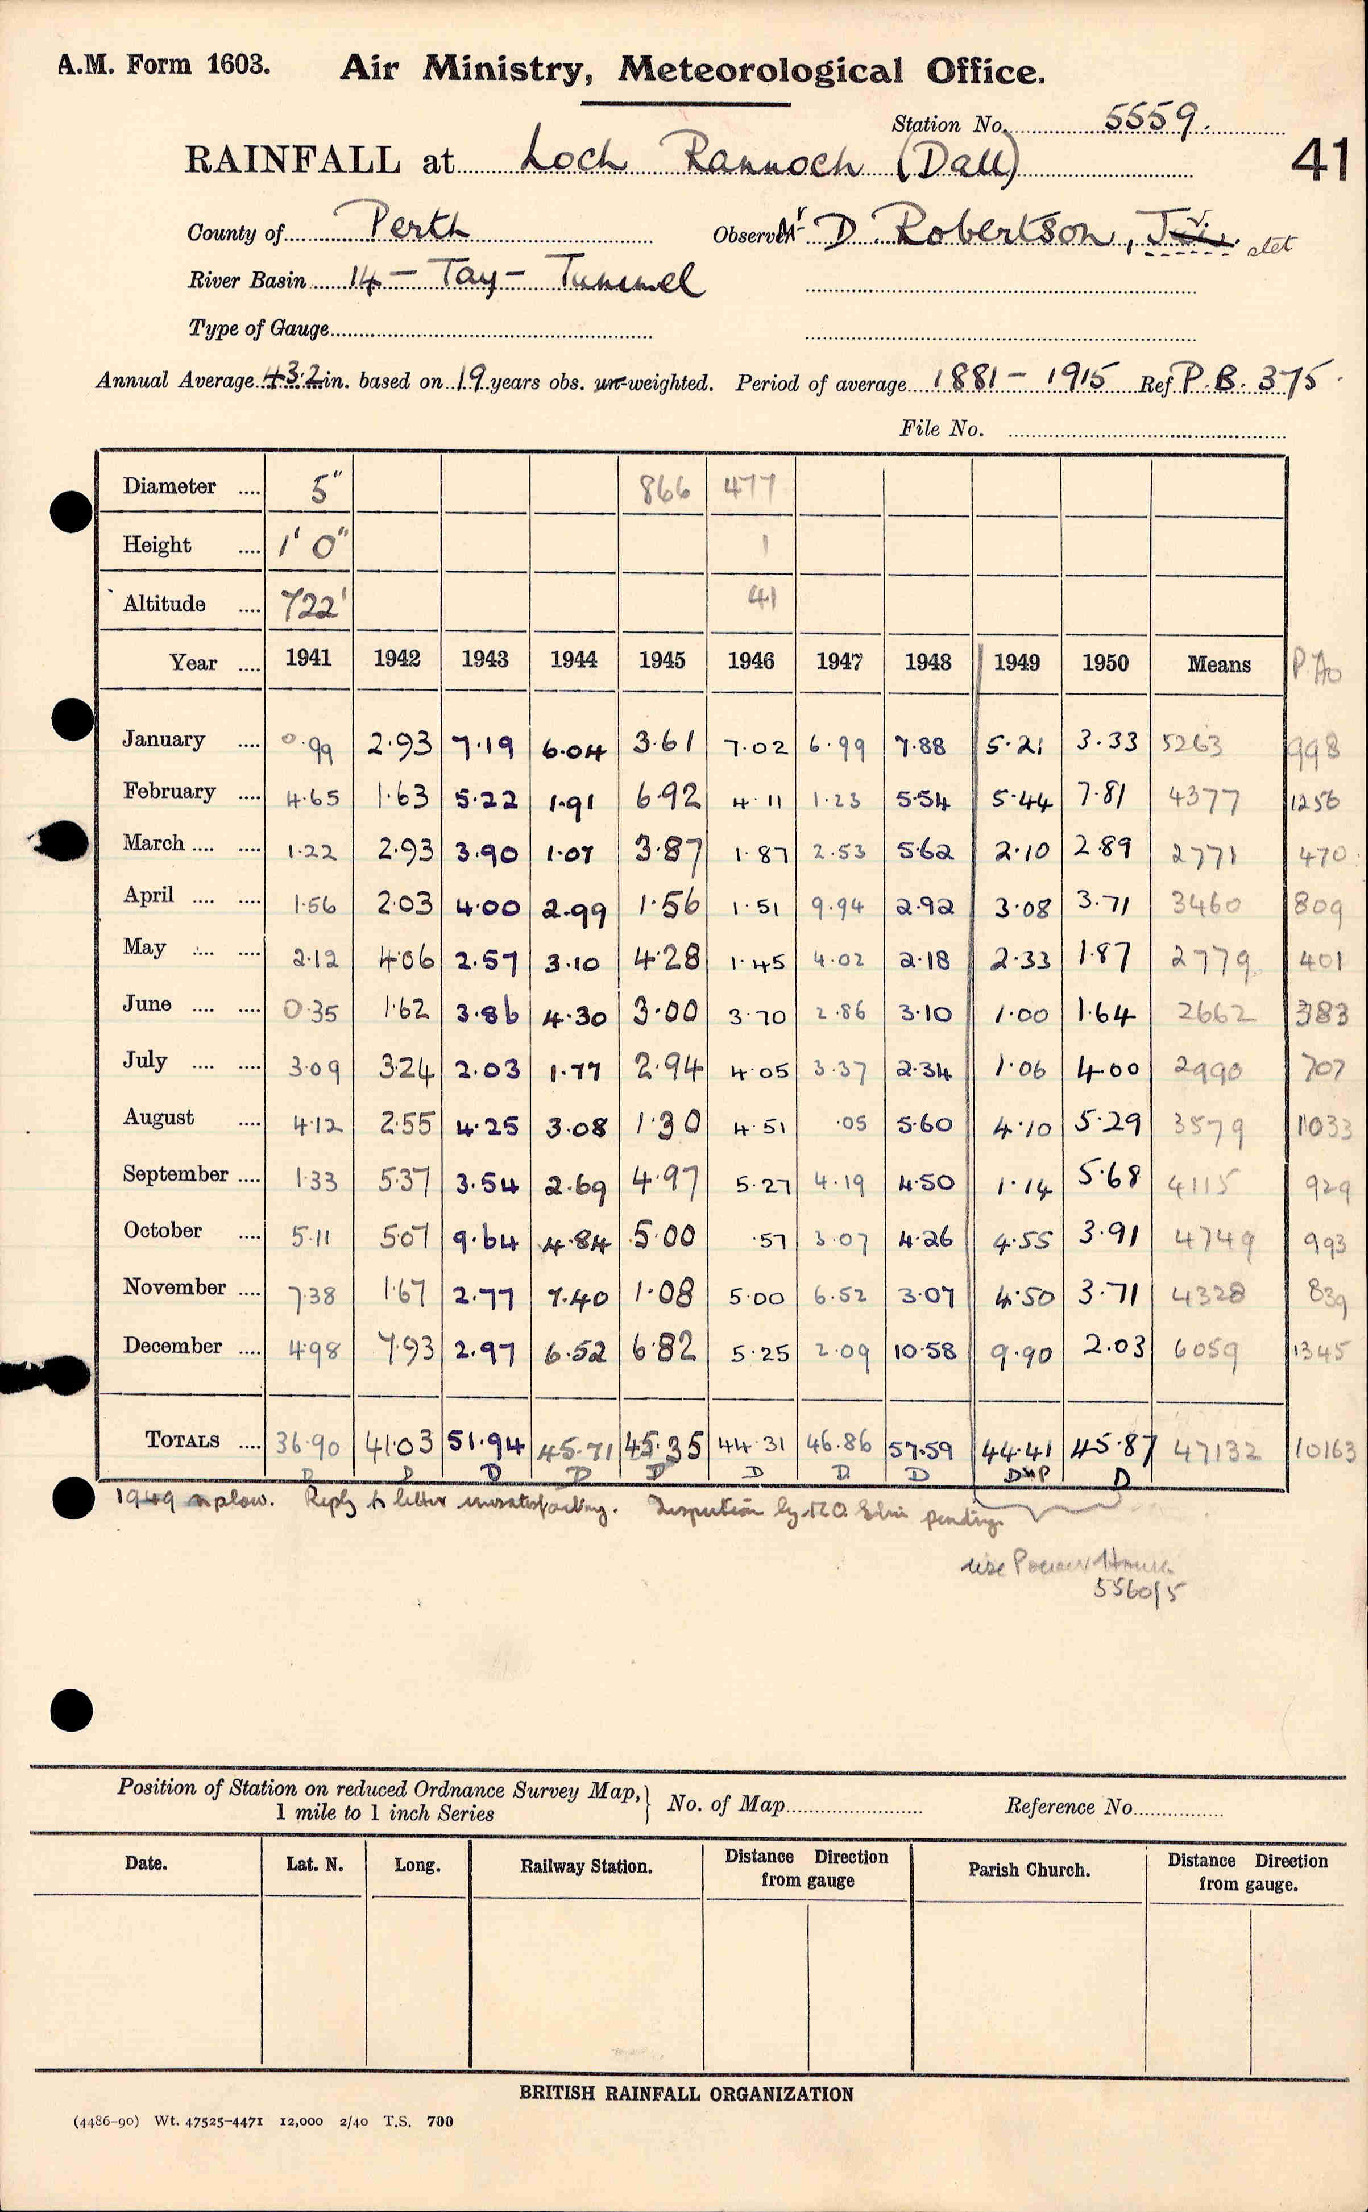 A.M. Form 1603. Air Ministry, Meteorological Office.
Station No. 5559.
41
RAINFALL at Loch Rannoch (Dall)
County of Perth Observer D. Robertson, Jr. stet
River Basin 14 - Tay - Tummel
Type of Gauge
Annual Average 43.2 in. based on 19 years obs. un-weighted. Period of average 1881 - 1915 Ref. P.B. 375.
File No.
Diameter .... 5" 866 477
Height .... 1' 0" 1
Altitude .... 722' 41
Year .... 1941 1942 1943 1944 1945 1946 1947 1948 1949 1950 Means
January .... 0.99 2.93 7.19 6.04 3.61 7.02 6.99 7.88 5.21 3.33 5263 998
February .... 4.65 1.63 5.22 1.91 6.92 4.11 1.23 5.54 5.44 7.81 4377 1256
March .... .... 1.22 2.93 3.90 1.07 3.87 1.87 2.53 5.62 2.10 2.89 2771 470
April .... .... 1.56 2.03 4.00 2.99 1.56 1.51 9.94 2.92 3.08 3.71 3460 809
May .... .... 2.12 4.06 2.57 3.10 4.28 1.45 4.02 2.18 2.33 1.87 2779 401
June .... .... 0.35 1.62 3.86 4.30 3.00 3.70 2.86 3.10 1.00 1.64 2662 383
July .... .... 3.09 3.24 2.03 1.77 2.94 4.05 3.37 2.34 1.06 4.00 2990 707
August .... 4.12 2.55 4.25 3.08 1.30 4.51 .05 5.60 4.10 5.29 3579 1033
September .... 1.33 5.37 3.54 2.69 4.97 5.27 4.19 4.50 1.14 5.68 4115 929
October .... 5.11 5.07 9.64 4.84 5.00 .57 3.07 4.26 4.55 3.91 4749 993
November .... 7.38 1.67 2.77 7.40 1.08 5.00 6.52 3.07 4.50 3.71 4328 839
December .... 4.98 7.93 2.97 6.52 6.82 5.25 2.09 10.58 9.90 2.03 6059 1345
TOTALS .... 36.90 41.03 51.94 45.71 45.35 44.31 46.86 57.59 44.41 45.87 47132 10163
D D D D D D D D D D
1949 Reply to letter unsatisfactory. Inspection by pending.
use Power House
5560/5
Position of Station on reduced Ordnance Survey Map,
1 mile to 1 inch Series
No. of Map
Reference No.
Date. Lat. N. Long. Railway Station. Distance Direction from gauge Parish Church. Distance Direction from gauge.
BRITISH RAINFALL ORGANIZATION
(4486-90) Wt. 47525-4471 12,000 2/40 T.S. 700